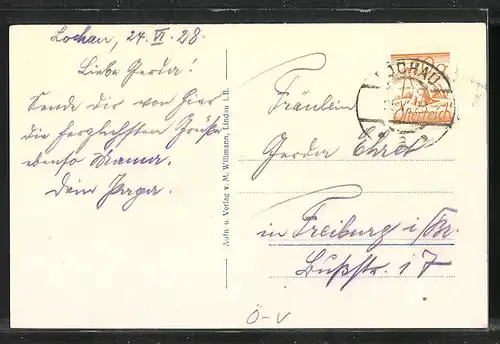 Lochau, 24. VI. 28.
Liebe Gerda!
Sende dir von hier
die herzlichsten Grüße
ebenso Mama.
Dein Papa.
Aufn. u. Verlag v. M. Wittmann, Lindau i. B.
LOCHAU
Österreich
Fräulein
Gerda
in Freiburg i/Br.
Bußstr. 17
Ö-V